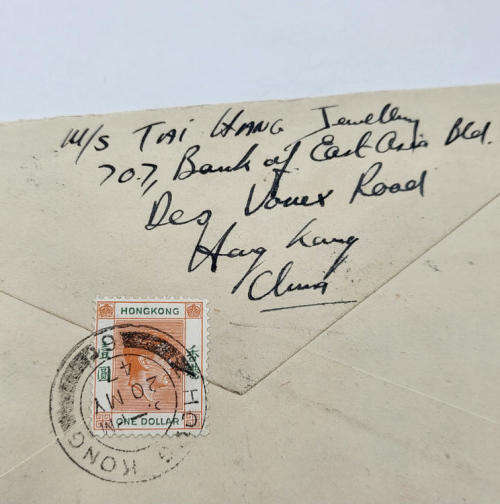 M/s TAI HANG Jewellery
707, Bank of East Asia Bld.
Des Vouex Road
Hong Kong
China
HONGKONG
壹圓
香港
ONE DOLLAR
HONG KONG
20 MY
47